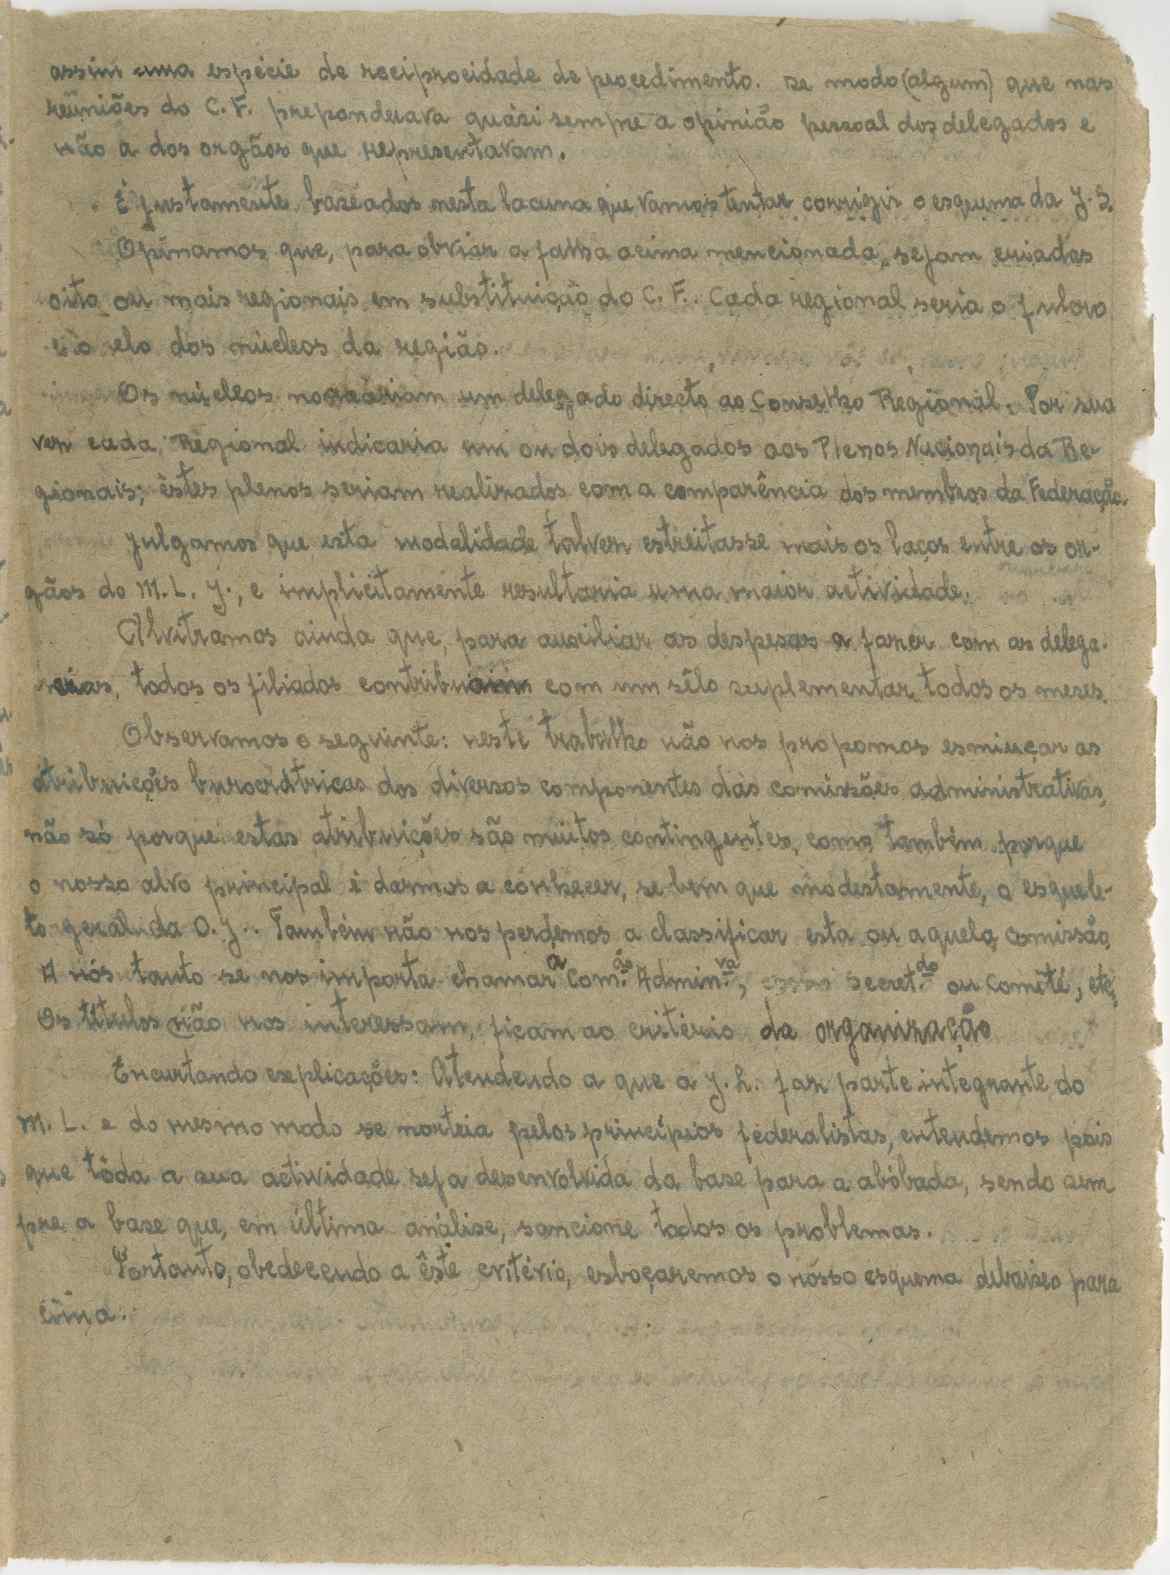 assim uma espécie de reciprocidade de procedimento. De modo (algum) que nas
reüniões do C. F. preponderava quási sempre a opinião pessoal dos delegados e
não a dos orgãos que representavam.
É justamente baseados nesta lacuna que vamos tentar corrigir o esquema da J. L.
Opinamos que, para obviar a falha acima mencionada, sejam criadas
oito ou mais regionais em substituïção do C. F.. Cada regional seria o fulcro
e o elo dos núcleos da região.
Os núcleos nomeariam um delegado directo ao Conselho Regional. Por sua
vez cada Regional indicaria um ou dois delegados aos Plenos Nacionais da Re-
gionais; êstes plenos seriam realizados com a comparência dos membros da Federação.
Julgamos que esta modalidade talvez estreitasse mais os laços entre os or-
gãos do M. L. J., e implicitamente resultaria uma maior actividade.
Alvitramos ainda que, para auxiliar as despesas a fazer com as delega-
cias, todos os filiados contribuam com um sêlo suplementar todos os meses.
Observamos o seguinte: neste trabalho não nos propomos esmiuçar as
atribuições burocráticas dos diversos componentes das comissões administrativas,
não só porque estas atribuïções são muitos contingentes, como também porque
o nosso alvo principal é darmos a conhecer, se bem que modestamente, o esquele-
to geral da O. J.. Também não nos perdemos a classificar esta ou aquela comissão.
A nós tanto se nos importa chamar a Com.ão Admin.va, como Secret.do ou Comité, etc.
Os títulos não nos interessam, ficam ao critério da organização
Encurtando explicações: Atendendo a que a J. L. faz parte integrante do
M. L. e do mesmo modo se norteia pelos princípios federalistas, entendemos pois
que tôda a sua actividade seja desenvolvida da base para a abóbada, sendo sem
pre a base que, em última análise, sancione todos os problemas.
Portanto, obedecendo a êste critério, esboçaremos o nosso esquema debaixo para
cima.